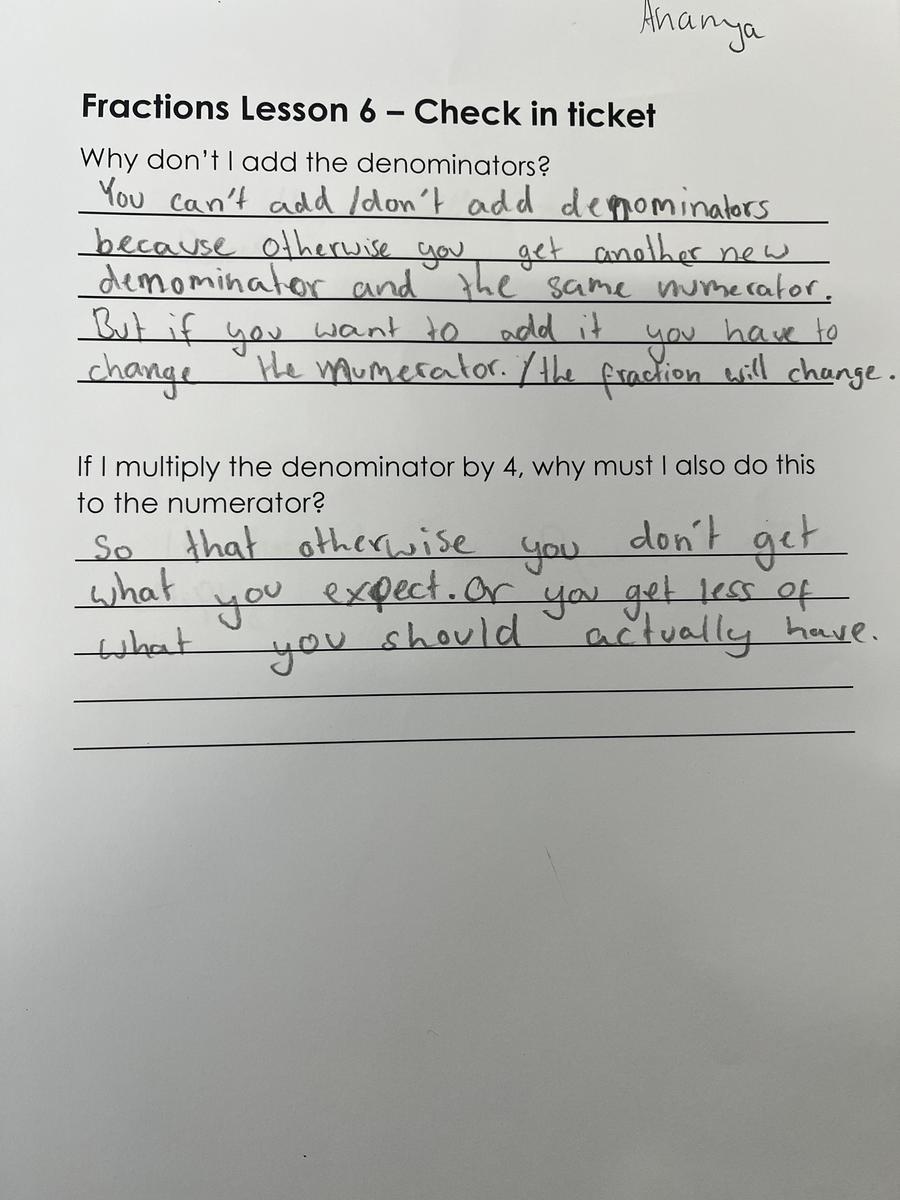 Ananya
Fractions Lesson 6 – Check in ticket
Why don't I add the denominators?
You can't add /don't add denominators
because otherwise you get another new
demominator and the same numerator.
But if you want to add it you have to
change the numerator. /the fraction will change.
If I multiply the denominator by 4, why must I also do this
to the numerator?
So that otherwise you don't get
what you expect. Or you get less of
what you should actually have.